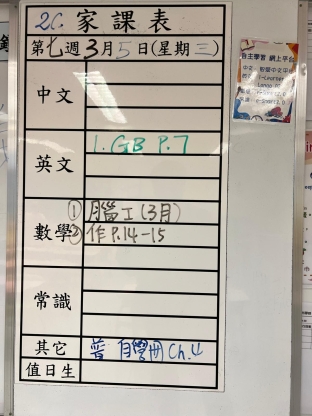 2C. 家課表
第七週3月5日(星期三)
中文
英文
1. GB P.7
數學
① 腦工(3月)
② 作P.14-15
常識
其它
普 自學冊 Ch.4
值日生
自主學習 網上平台